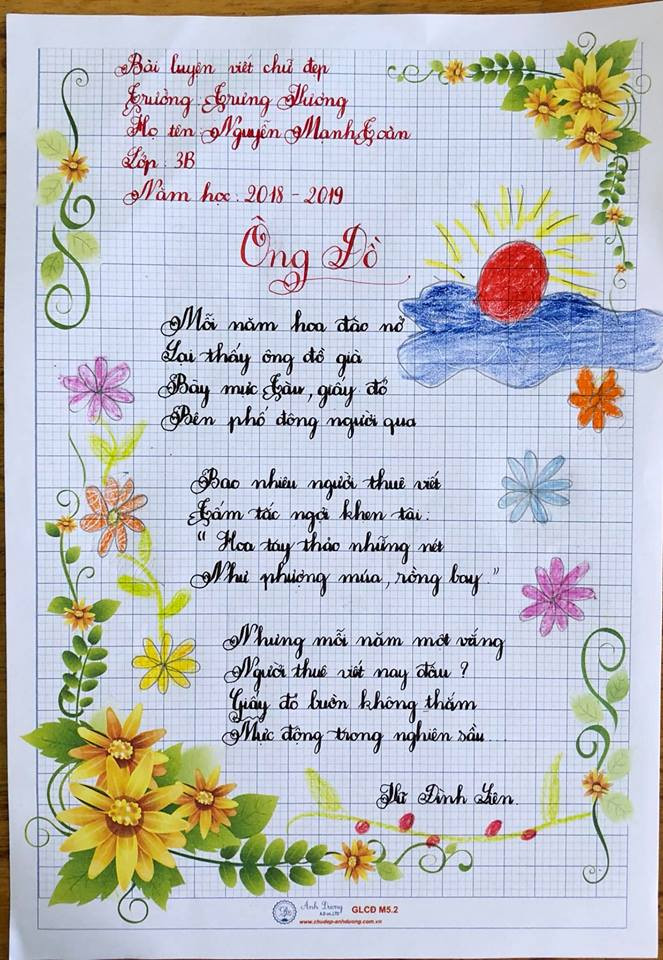 Bài luyện viết chữ đẹp
Trường Trưng Vương
Họ tên: Nguyễn Mạnh Toàn
Lớp: 3B
Năm học: 2018 - 2019
Ông Đồ
Mỗi năm hoa đào nở
Lại thấy ông đồ già
Bày mực Tàu, giấy đỏ
Bên phố đông người qua
Bao nhiêu người thuê viết
Tấm tắc ngợi khen tài.
“ Hoa tay thảo những nét
Như phượng múa, rồng bay ”
Nhưng mỗi năm mỗi vắng
Người thuê viết nay đâu ?
Giấy đỏ buồn không thắm
Mực đọng trong nghiên sầu...
Vũ Đình Liên.
Ánh Dương
GLCĐ M5.2
www.chudep-anhduong.com.vn